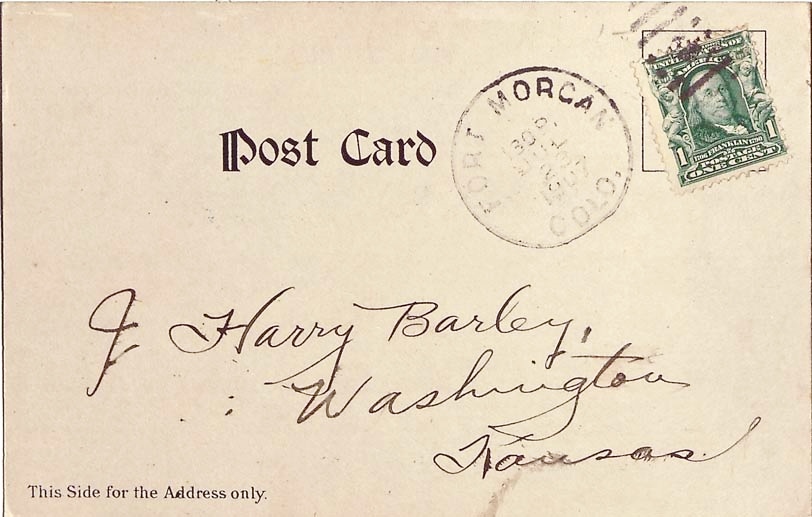 Post Card
FORT MORGAN
COLO.
1907
UNITED STATES OF
AMERICA
1
1706 FRANKLIN 1790
POSTAGE
ONE CENT
1
J Harry Barley,
Washington
Kansas
This Side for the Address only.